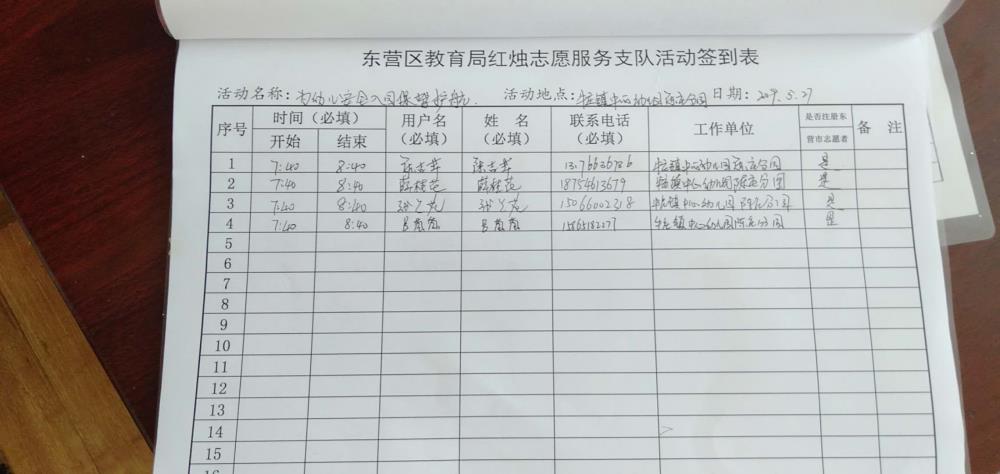 东营区教育局红烛志愿服务支队活动签到表
活动名称：为幼儿安全入园保驾护航. 活动地点：牛庄镇中心幼儿园陈庄分园 日期：2019.5.27
序号 时间（必填） 用户名（必填） 姓名（必填） 联系电话（必填） 工作单位 是否注册东营市志愿者 备注
开始 结束
1 7:40 8:40 牛庄镇中心幼儿园陈庄分园 是
2 7:40 8:40 薛桂花 薛桂花 18754613679 牛庄镇中心幼儿园陈庄分园 是
3 7:40 8:40 15066002318 牛庄镇中心幼儿园陈庄分园 是
4 7:40 8:40 牛庄镇中心幼儿园陈庄分园 是
5
6
7
8
9
10
11
12
13
14
15
16